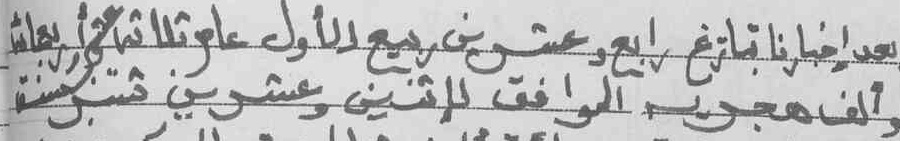 بعد إخبارنا بتاريخ رابع وعشرين ربيع الأول عام ثلاثة عشر وأربعمائة
وألف هجرية الموافق لاثنين وعشرين شتنبر سنة